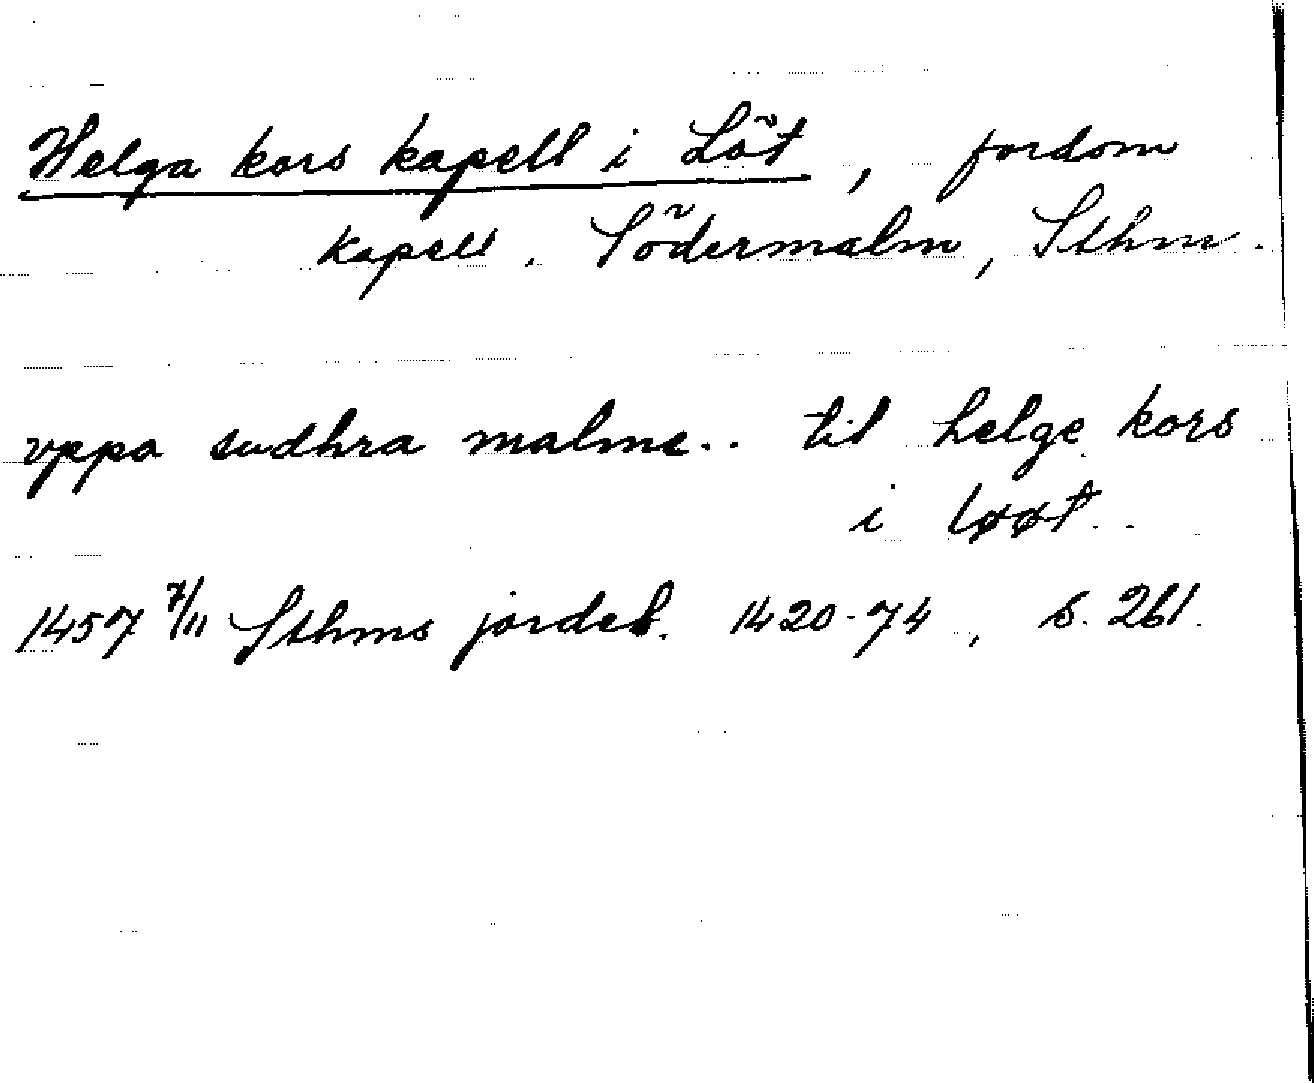 Helga kors kapell i Löt, fordom
kapell. Södermalm, Sthm.
vppa sudhra malme.. til helge kors
i løøt..
1457 7/11 Sthms jordeb. 1420-74, s. 261.